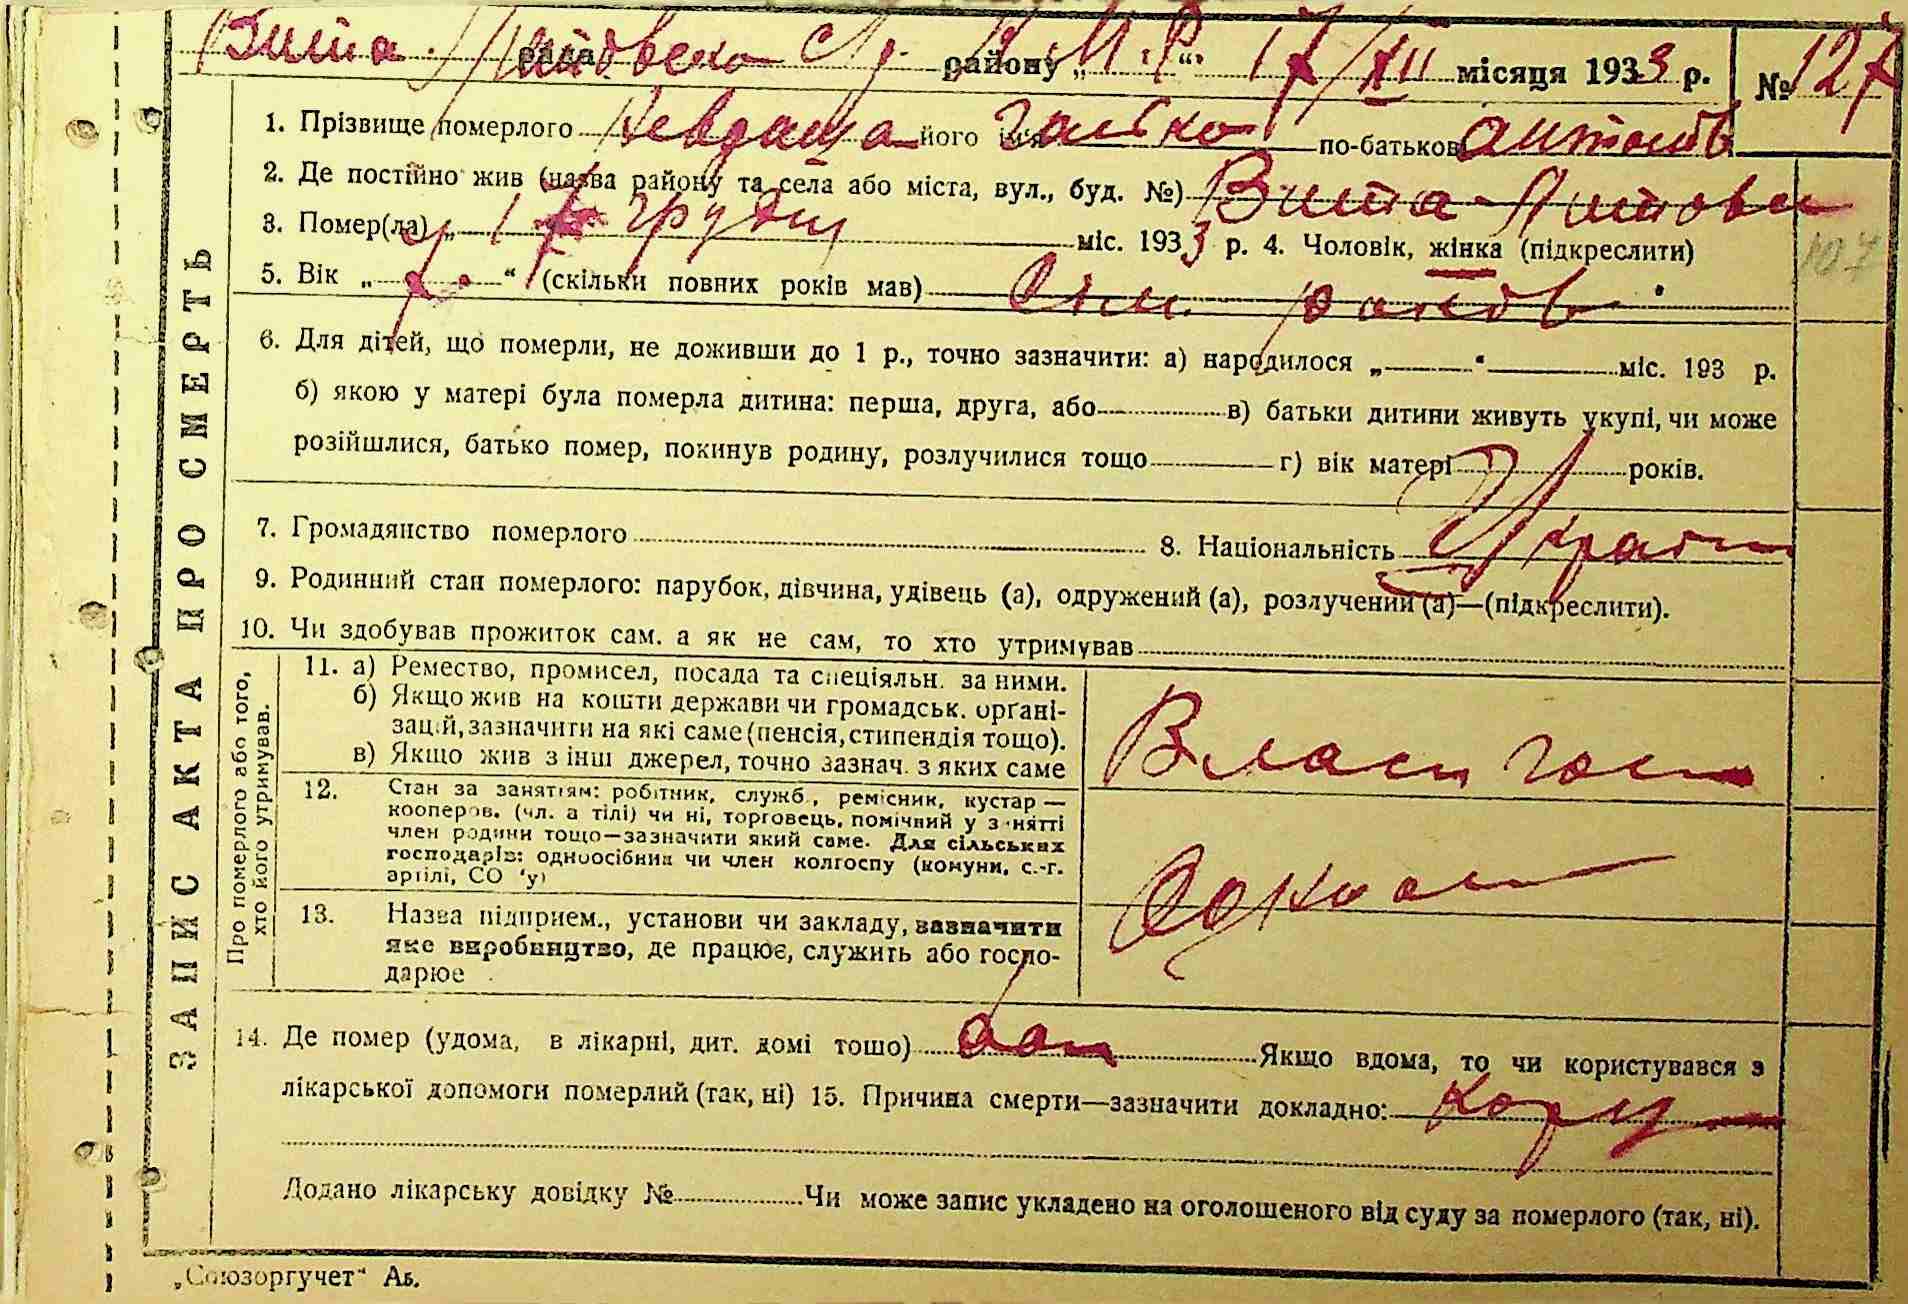 Вита Литовська с/р. рада району „ К.М.Р. “ 17/XII місяця 1933 р. № 127
1. Прізвище померлого його ім'я Галька по-батькові Антонів
2. Де постійно жив (назва району та села або міста, вул., буд. №) Вита-Литовськ
3. Помер(ла) „ 17 грудня міс. 1933 р. 4. Чоловік, жінка (підкреслити)
107
5. Вік „ 7 “ (скільки повних років мав) Сім років
6. Для дітей, що померли, не доживши до 1 р., точно зазначити: а) народилося „ “ міс. 193 р.
б) якою у матері була померла дитина: перша, друга, або в) батьки дитини живуть укупі, чи може
розійшлися, батько помер, покинув родину, розлучилися тощо г) вік матері років.
7. Громадянство померлого 8. Національність Україн
9. Родинний стан померлого: парубок, дівчина, удівець (а), одружений (а), розлучений (а)—(підкреслити).
10. Чи здобував прожиток сам. а як не сам, то хто утримував
ЗАПИС АКТА ПРО СМЕРТЬ
Про померлого або того,
хто його утримував.
11. а) Ремество, промисел, посада та спеціяльн. за ними.
б) Якщо жив на кошти держави чи громадськ. орґані-
зацій, зазначити на які саме (пенсія, стипендія тощо).
в) Якщо жив з інш джерел, точно зазнач. з яких саме
Власн госп
12. Стан за заняттям: робітник, служб., ремісник, кустар —
кооперов. (чл. а тілі) чи ні, торговець, помічний у з нятті
член родини тощо—зазначити який саме. Для сільських
господарів: одноосібник чи член колгоспу (комуни, с.-г.
артілі, СО 'у)
Одноос
13. Назва підприєм., установи чи закладу, зазначити
яке виробництво, де працює, служить або госпо-
дарює
14. Де помер (удома, в лікарні, дит. домі тощо) дома Якщо вдома, то чи користувався з
лікарської допомоги померлий (так, ні) 15. Причина смерти—зазначити докладно: Кору
Додано лікарську довідку № Чи може запис укладено на оголошеного від суду за померлого (так, ні).
„Союзоргучет“ Ав.